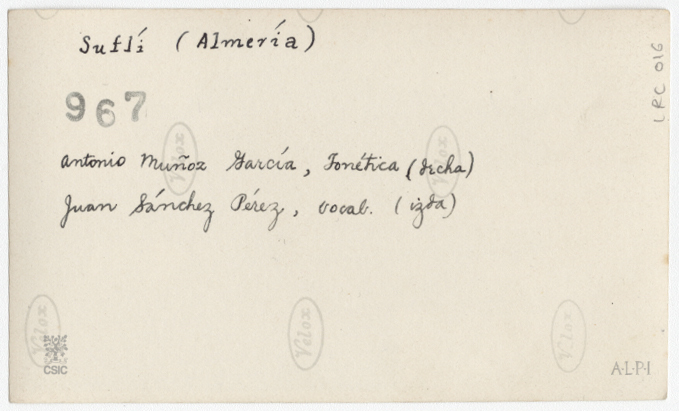 Suflí (Almería)
LRC 016
967
Antonio Muñoz García, Fonética (dcha)
Juan Sánchez Pérez, vocab. (izda)
Velox
Velox
Velox
Velox
Velox
Velox
CSIC
A·L·P·I